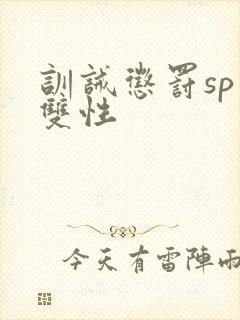 訓誡懲罰sp
雙性
今天有雷陣雨